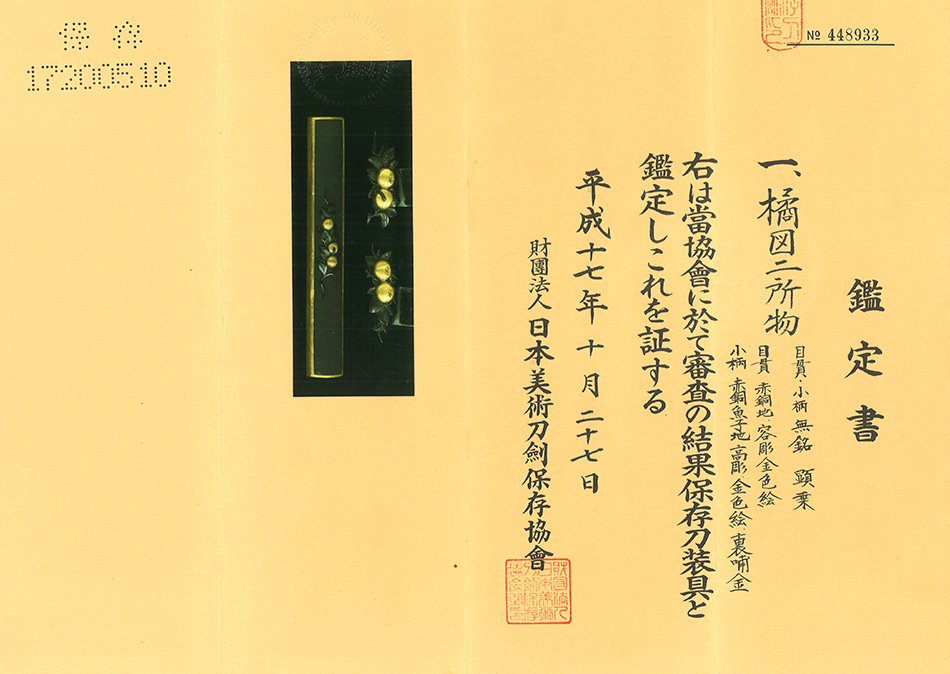 № 448933
鑑定書
一、橘図二所物
目貫・小柄 無銘 顕乗
目貫 赤銅地 容彫 金色絵
小柄 赤銅魚子地 高彫 金色絵 裏哺金
右は當協會に於て審査の結果保存刀装具と
鑑定しこれを証する
平成十七年十月二十七日
財團法人 日本美術刀劍保存協會
保存
17200510